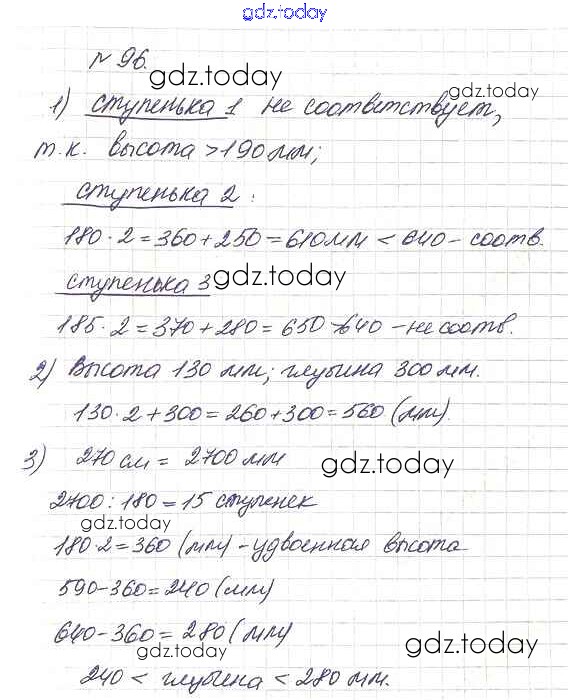 gdz.today
№ 96.
gdz.today
gdz.today
1) ступенька 1 не соответствует,
т.к. высота >190 мм;
ступенька 2:
180·2=360+250=610мм < 640 - соотв.
ступенька 3 gdz.today
185·2=370+280=650>640 - не соотв.
2) Высота 130 мм; глубина 300 мм.
130·2+300=260+300=560 (мм).
3) 270 см = 2700 мм
gdz.today
2700:180=15 ступенек
gdz.today
180·2=360 (мм) - удвоенная высота
590-360=240 (мм)
640-360=280 (мм)
gdz.today
gdz.today
240 < глубина < 280 мм.